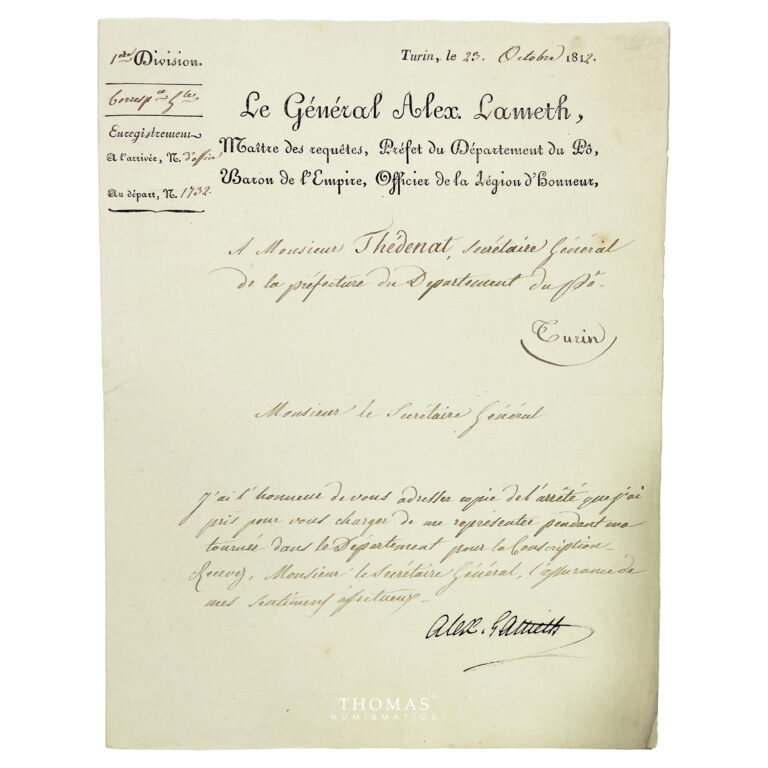 1ère Division.
Corresp.ce Gle
Enregistrement
A l'arrivée, N. d'office
Au départ, N. 1732.
Turin, le 23. Octobre 1812.
Le Général Alex. Lameth,
Maître des requêtes, Préfet du Département du Pô,
Baron de l'Empire, Officier de la Légion d'honneur,
A Monsieur Thédenat, Secrétaire Général
de la préfecture du Département du Pô.
Turin
Monsieur le Secrétaire Général
J'ai l'honneur de vous adresser copie de l'arrêté que j'ai
pris pour vous charger de me représenter pendant ma
tournée dans le Département pour la Conscription.
Recevez, Monsieur le Secrétaire Général, l'assurance de
mes sentimens affectueux.
Alex. Lameth
THOMAS
NUMISMATICS